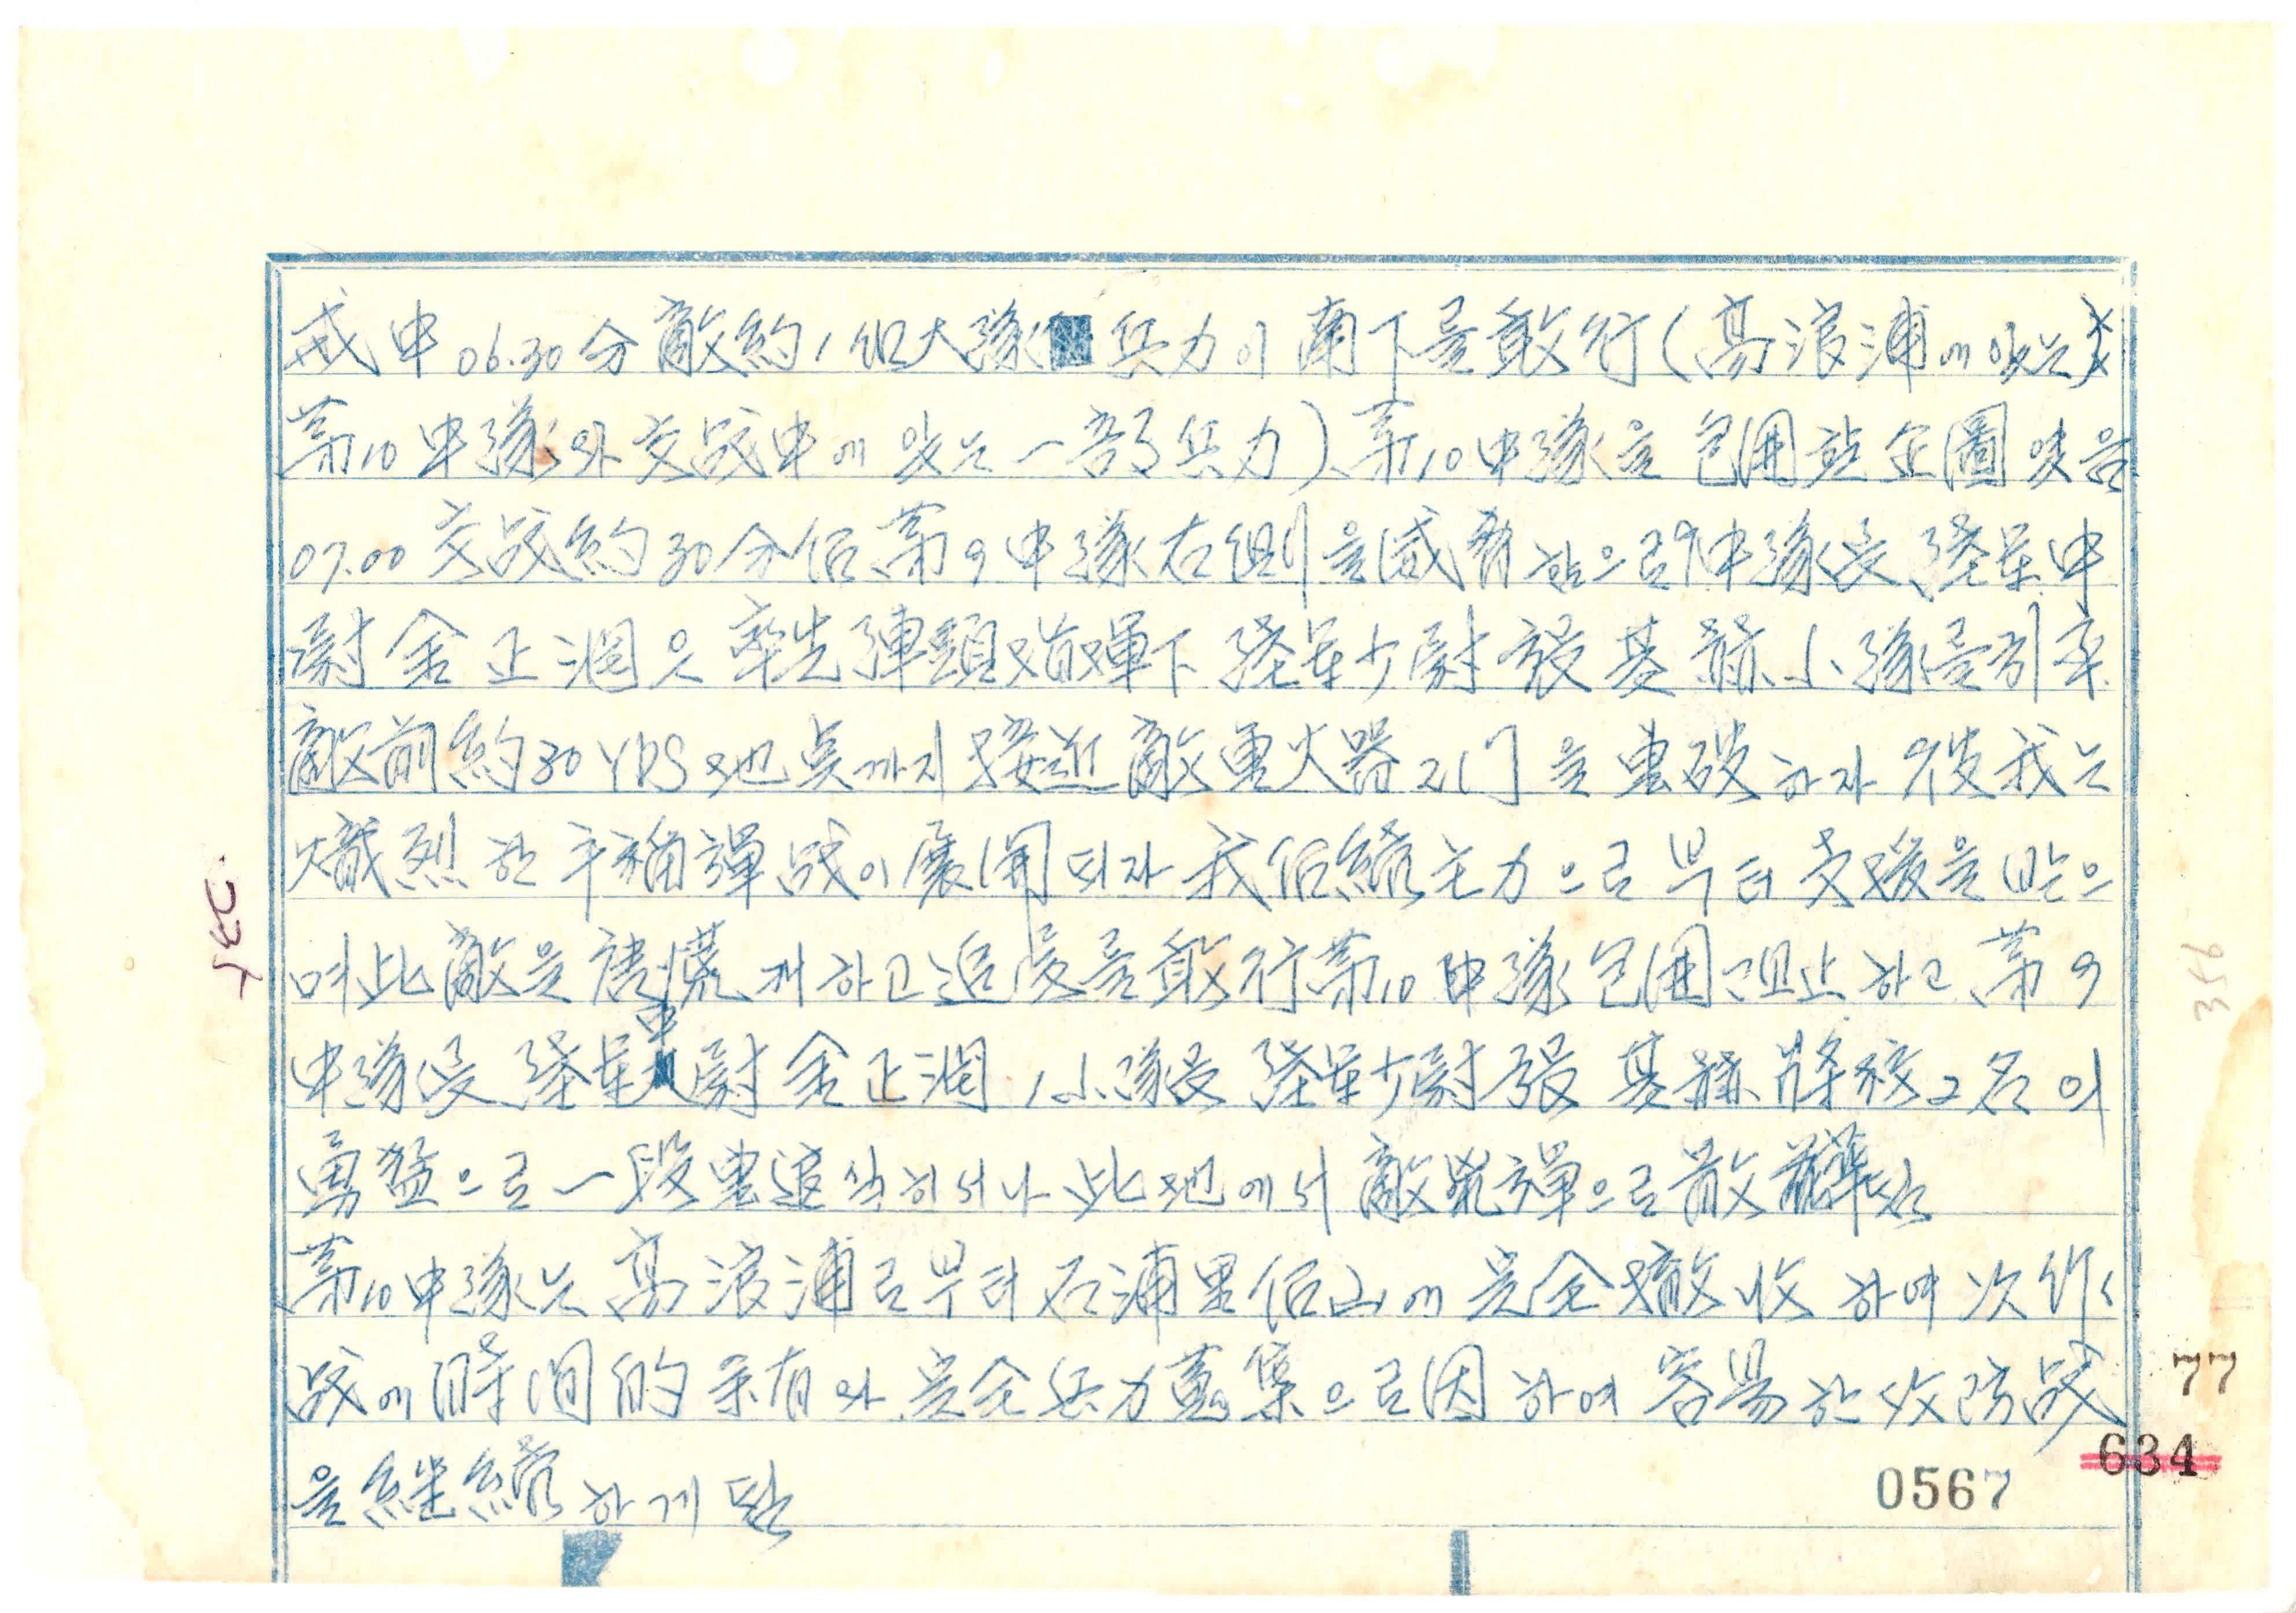 戒中 06.30分 敵約 1個大隊 兵力이 南下를 敢行(高浪浦에 있는
第10中隊와 交戰中에 있는 一部 兵力) 第10中隊를 包囲할 企圖
07.00 交戰約 30分后 第9中隊 右側을 威脅함으로 9中隊長 陸軍中
尉 金正潤은 率先陣頭指揮下 陸軍少尉 張基 小隊를 引率
敵前約 30 YDS 地点까지 接近 敵重火器 2門을 하자 彼我는
熾烈한 手榴彈戰이 展開되자 我后續主力으로부터 支援을 받으
며 此敵을 唐慌케 하고 追擊를 敢行 第10中隊 包囲 阻止하고 第9
中隊長 陸軍中尉 金正潤, 小隊長 陸軍少尉 張基 將校 2名이
勇猛으로 一段 나 此地에서 敵銃彈으로 散華됨
第10中隊는 高浪浦로부터 石浦里 后山에 完全 撤收하여 次作
戰에 時間的 余有와 完全 兵力 蒐集으로 因하여 容易한 攻防戰
을 継續하게 됨
356
77
634
0567